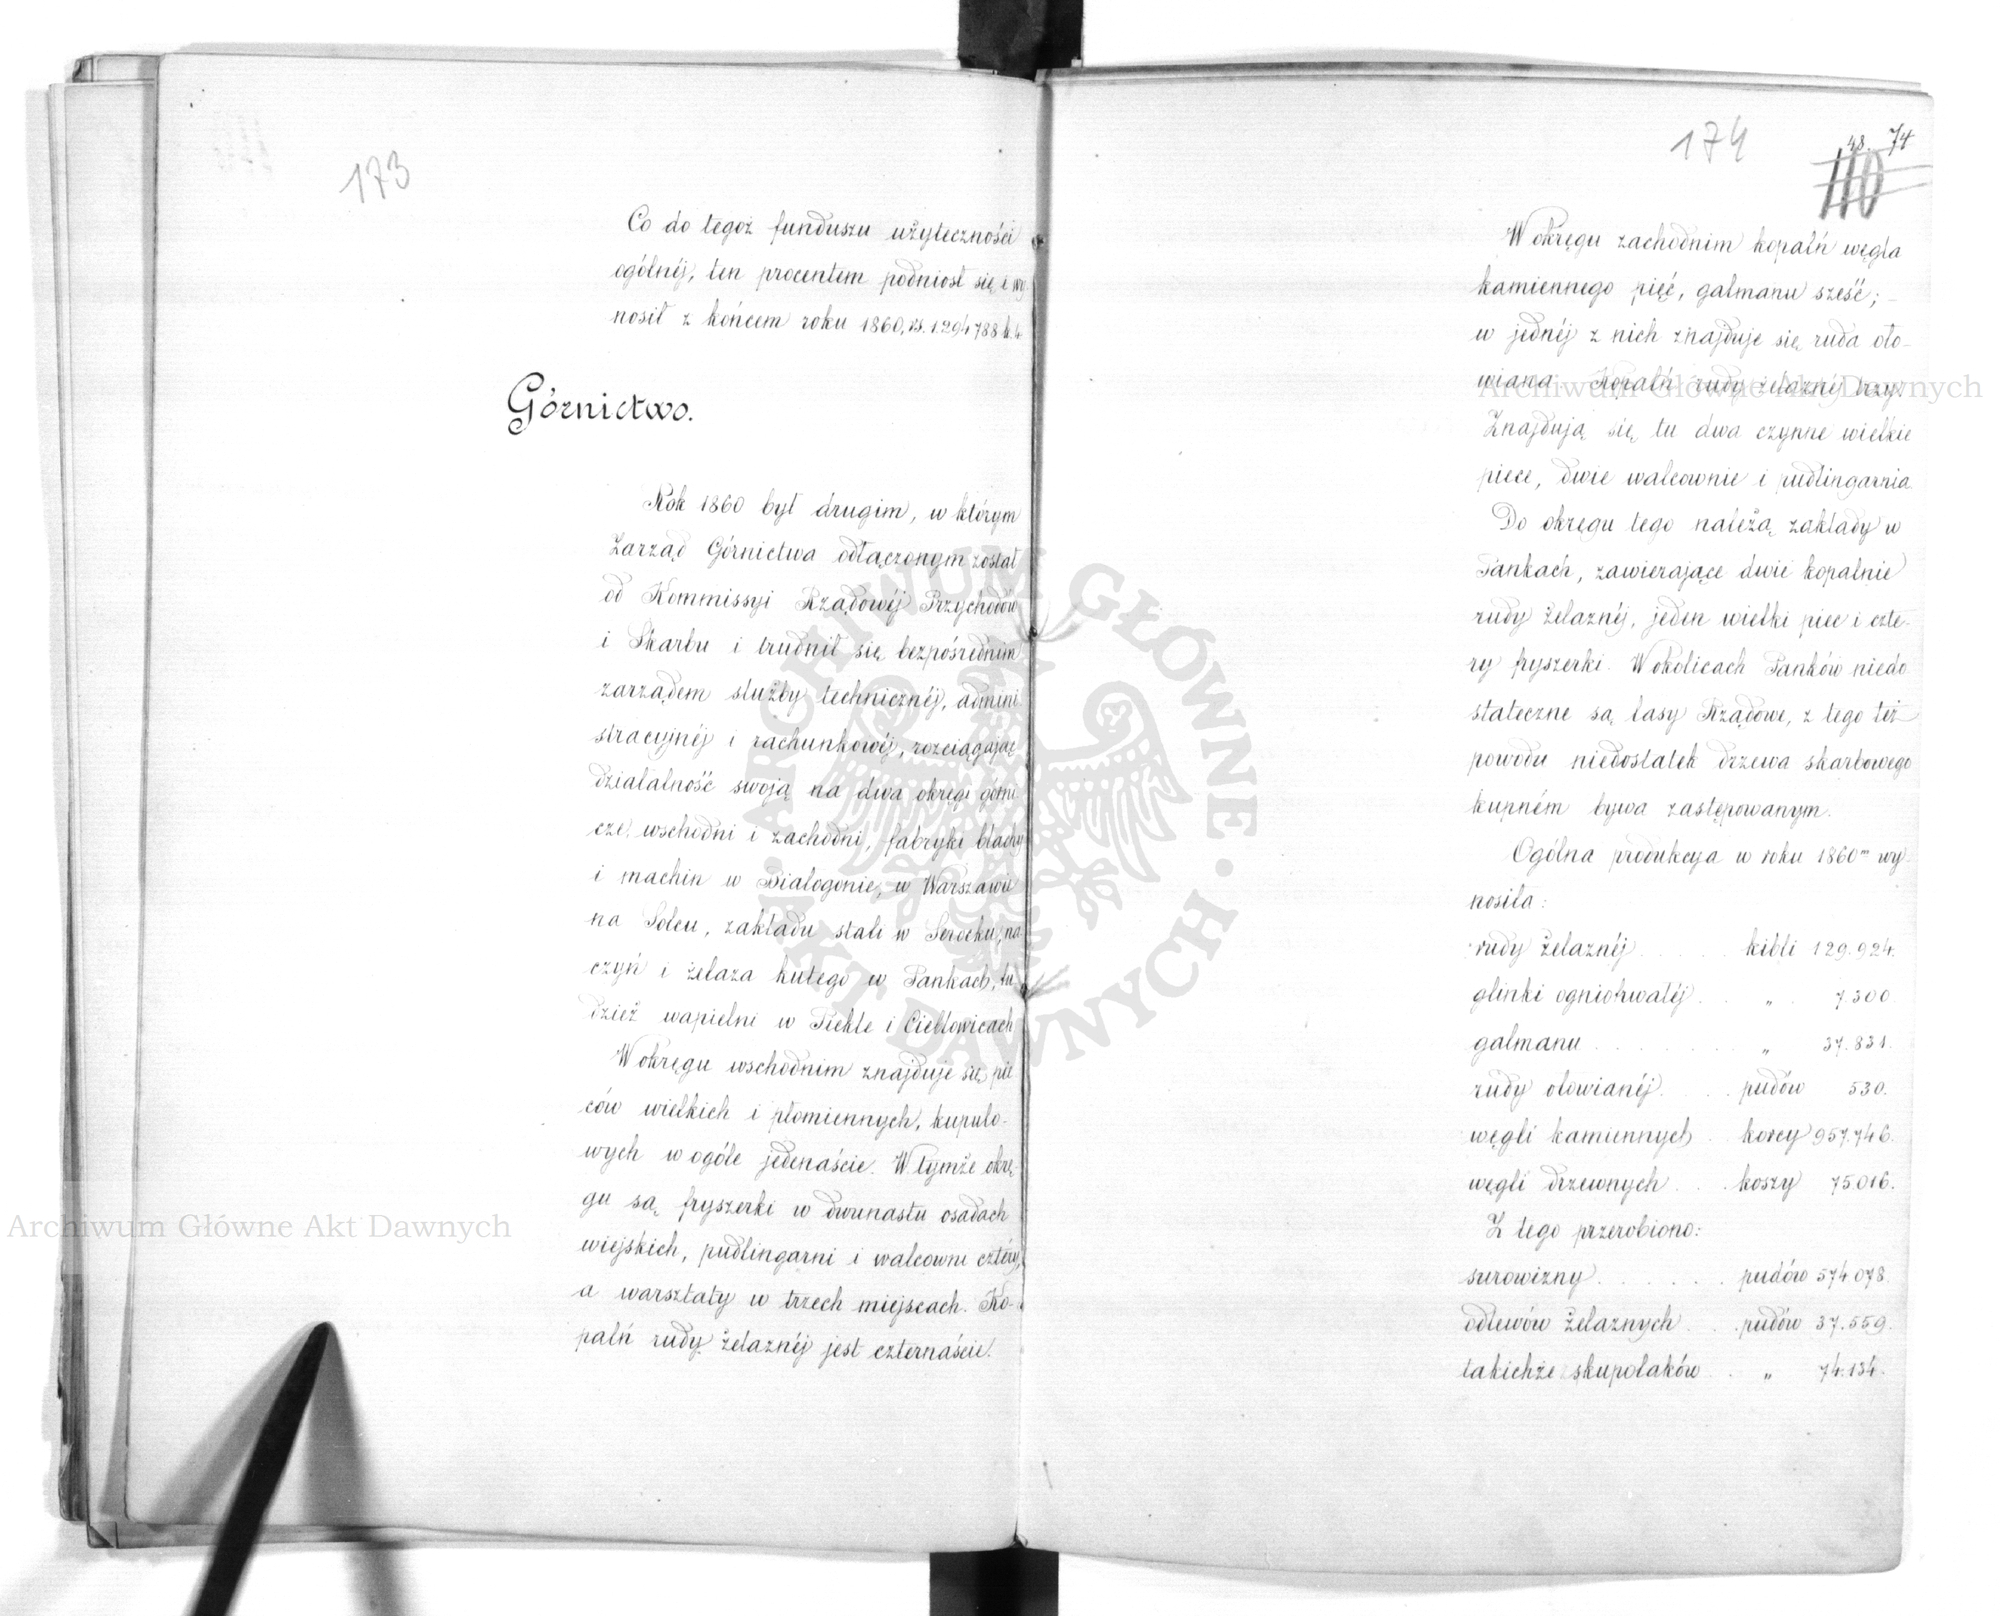 173
Co do tegoż funduszu użyteczności
ogólnéj, ten procentem podniosł się i wy
nosił z końcem roku 1860, rs. 1.294788 k. 4
Górnictwo.
Rok 1860 był drugim, w którym
Zarząd Górnictwa odłączonym został
od Kommissyi Rządowéj Przychodów
i Skarbu i trudnił się bezpośrednim
zarządem służby technicznéj, admini
stracyjnéj i rachunkowéj, rozciągając
działalność swoją na dwa okręgi górni
cze, wschodni i zachodni, fabryki blachy
i machin w Białogonie, w Warszawie
na Solcu, zakładu stali w Serocku, na
czyń i żelaza kutego w Pankach, tu
dzież wapielni w Piekle i Ciebłowicach
W okręgu wschodnim znajduje się pie
ców wielkich i płomiennych, kupulo-
wych w ogóle jedenaście. W tymże okrę-
gu są fryszerki w dwunastu osadach
wiejskich, pudlingarni i walcowni cztéry,
a warsztaty w trzech miejscach. Ko-
palń rudy żelaznéj jest czternaście.
174
48. 74
110
W okręgu zachodnim kopalń węgla
kamiennego pięć, galmanu sześć; –
w jednéj z nich znajduje się ruda oło-
wiana. Kopalń rudy żelaznéj trzy.
Znajdują się tu dwa czynne wielkie
piece, dwie walcownie i pudlingarnia.
Do okręgu tego należą zakłady w
Pankach, zawierające dwie kopalnie
rudy żelaznéj, jeden wielki piec i czte-
ry fryszerki. W okolicach Panków niedo
stateczne są lasy Rządowe, z tego też
powodu niedostatek drzewa skarbowego
kupném bywa zastępowanym.
Ogólna produkcya w roku 1860ᵐ wy-
nosiła:
rudy żelaznéj . . . . . kibli 129.924.
glinki ogniotrwałéj . . „ . 7300
galmanu . . . . . . . „ 37.831.
rudy ołowianéj . . . . pudów 530.
węgli kamiennych . . korcy 957.746.
węgli drzewnych . . . koszy 75.016.
Z tego przerobiono:
surowizny . . . . . . pudów 574.078.
odlewów żelaznych . . pudów 37.559.
takichże z kupolaków . . „ 74.134.
Archiwum Główne Akt Dawnych
Archiwum Główne Akt Dawnych
ARCHIWUM GŁÓWNE · AKT DAWNYCH ·